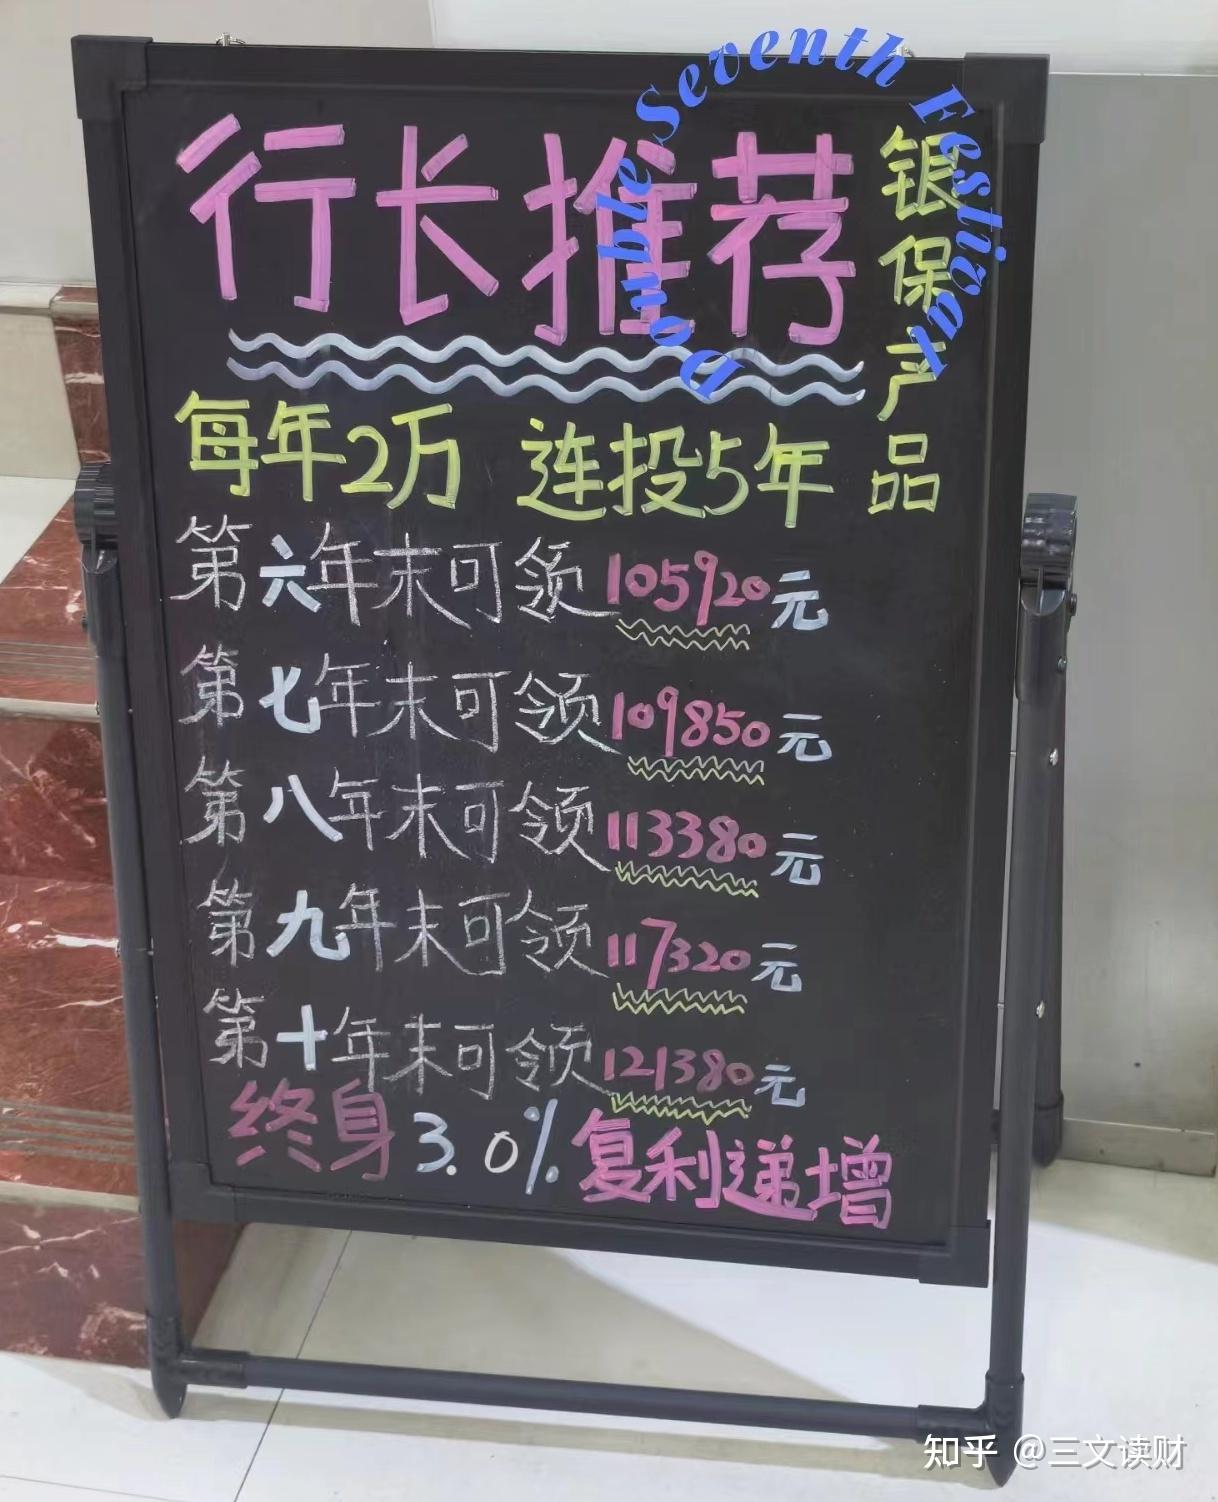 行长推荐
银保产品
Double Seventh Festival
每年2万 连投5年
第六年末可领105920元
第七年末可领109850元
第八年末可领113380元
第九年末可领117320元
第十年末可领121380元
终身3.0%复利递增
知乎 @三文读财